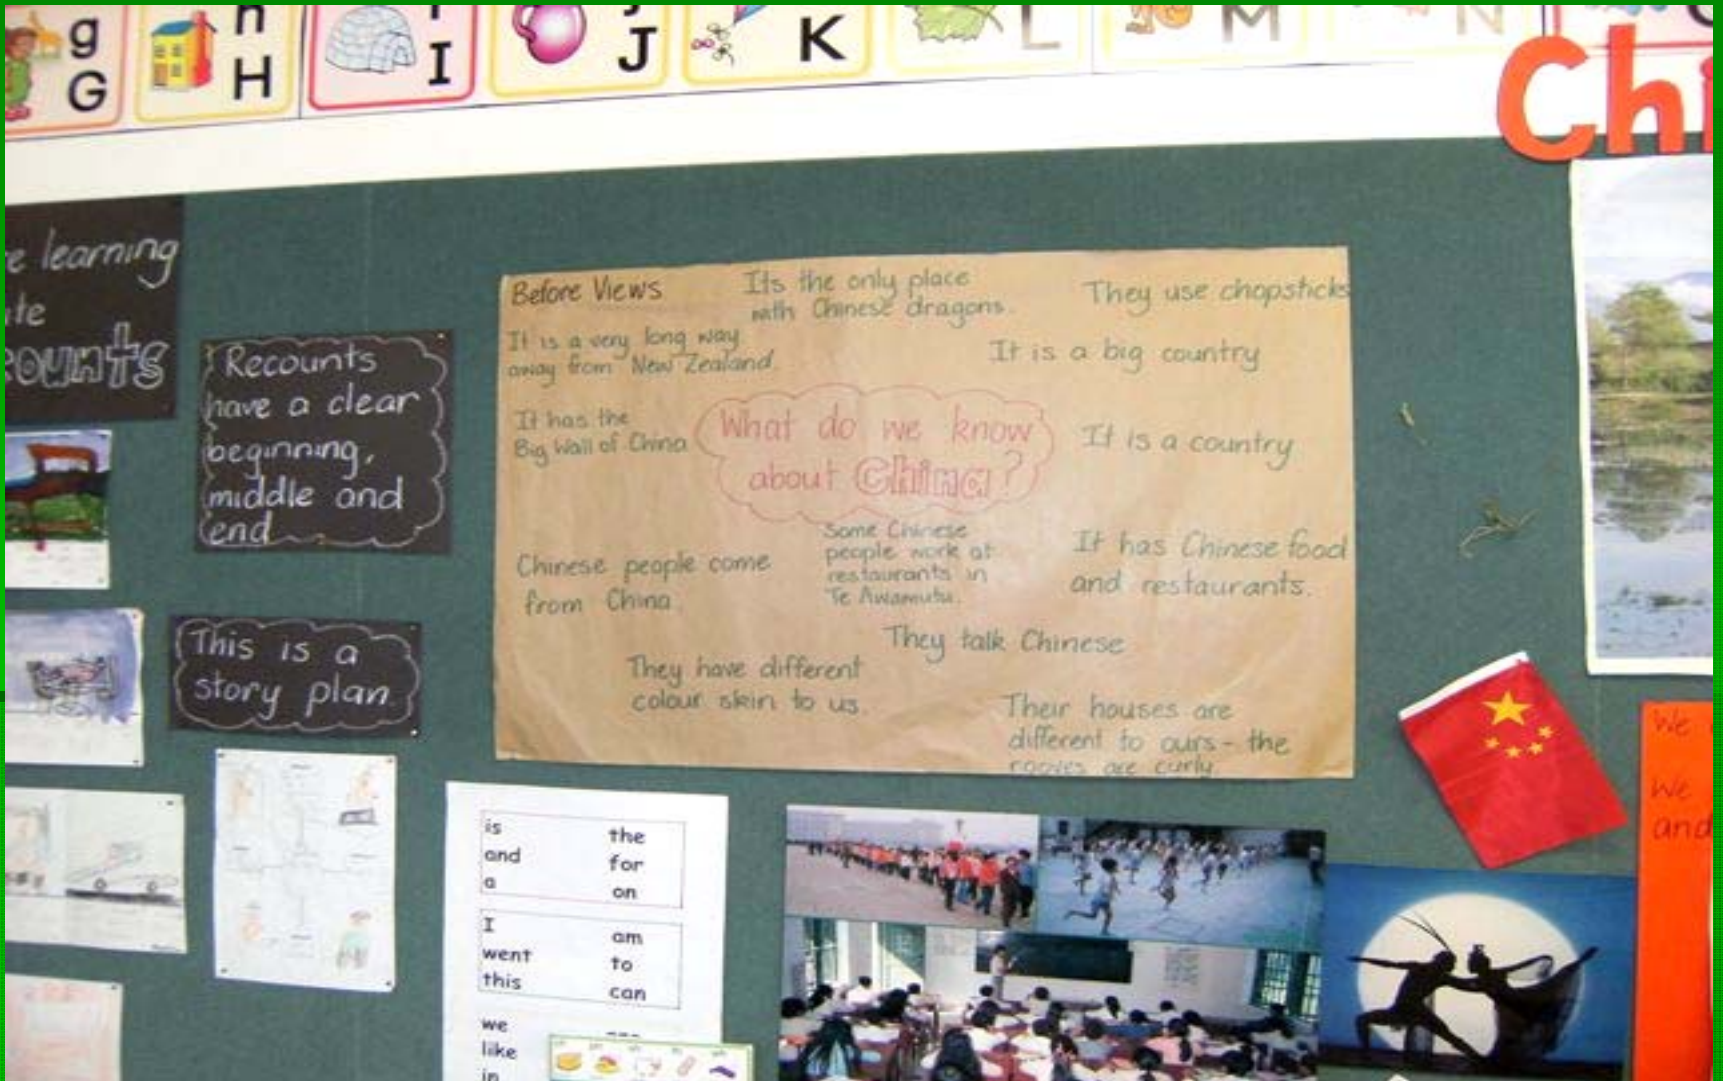 g
G
h
H
I
J
K
L
M
N
Chi
learning
Recounts
have a clear
beginning,
middle and
end
This is a
story plan.
Before Views
Its the only place
with Chinese dragons.
They use chopsticks
It is a very long way
away from New Zealand.
It is a big country
It has the
Big Wall of China
What do we know
about China?
It is a country
Chinese people come
from China.
Some Chinese
people work at
restaurants in
Te Awamutu.
It has Chinese food
and restaurants.
They talk Chinese
They have different
colour skin to us.
Their houses are
different to ours - the
rooves are curly.
is the
and for
a on
I am
went to
this can
we
like
in
We
We
and